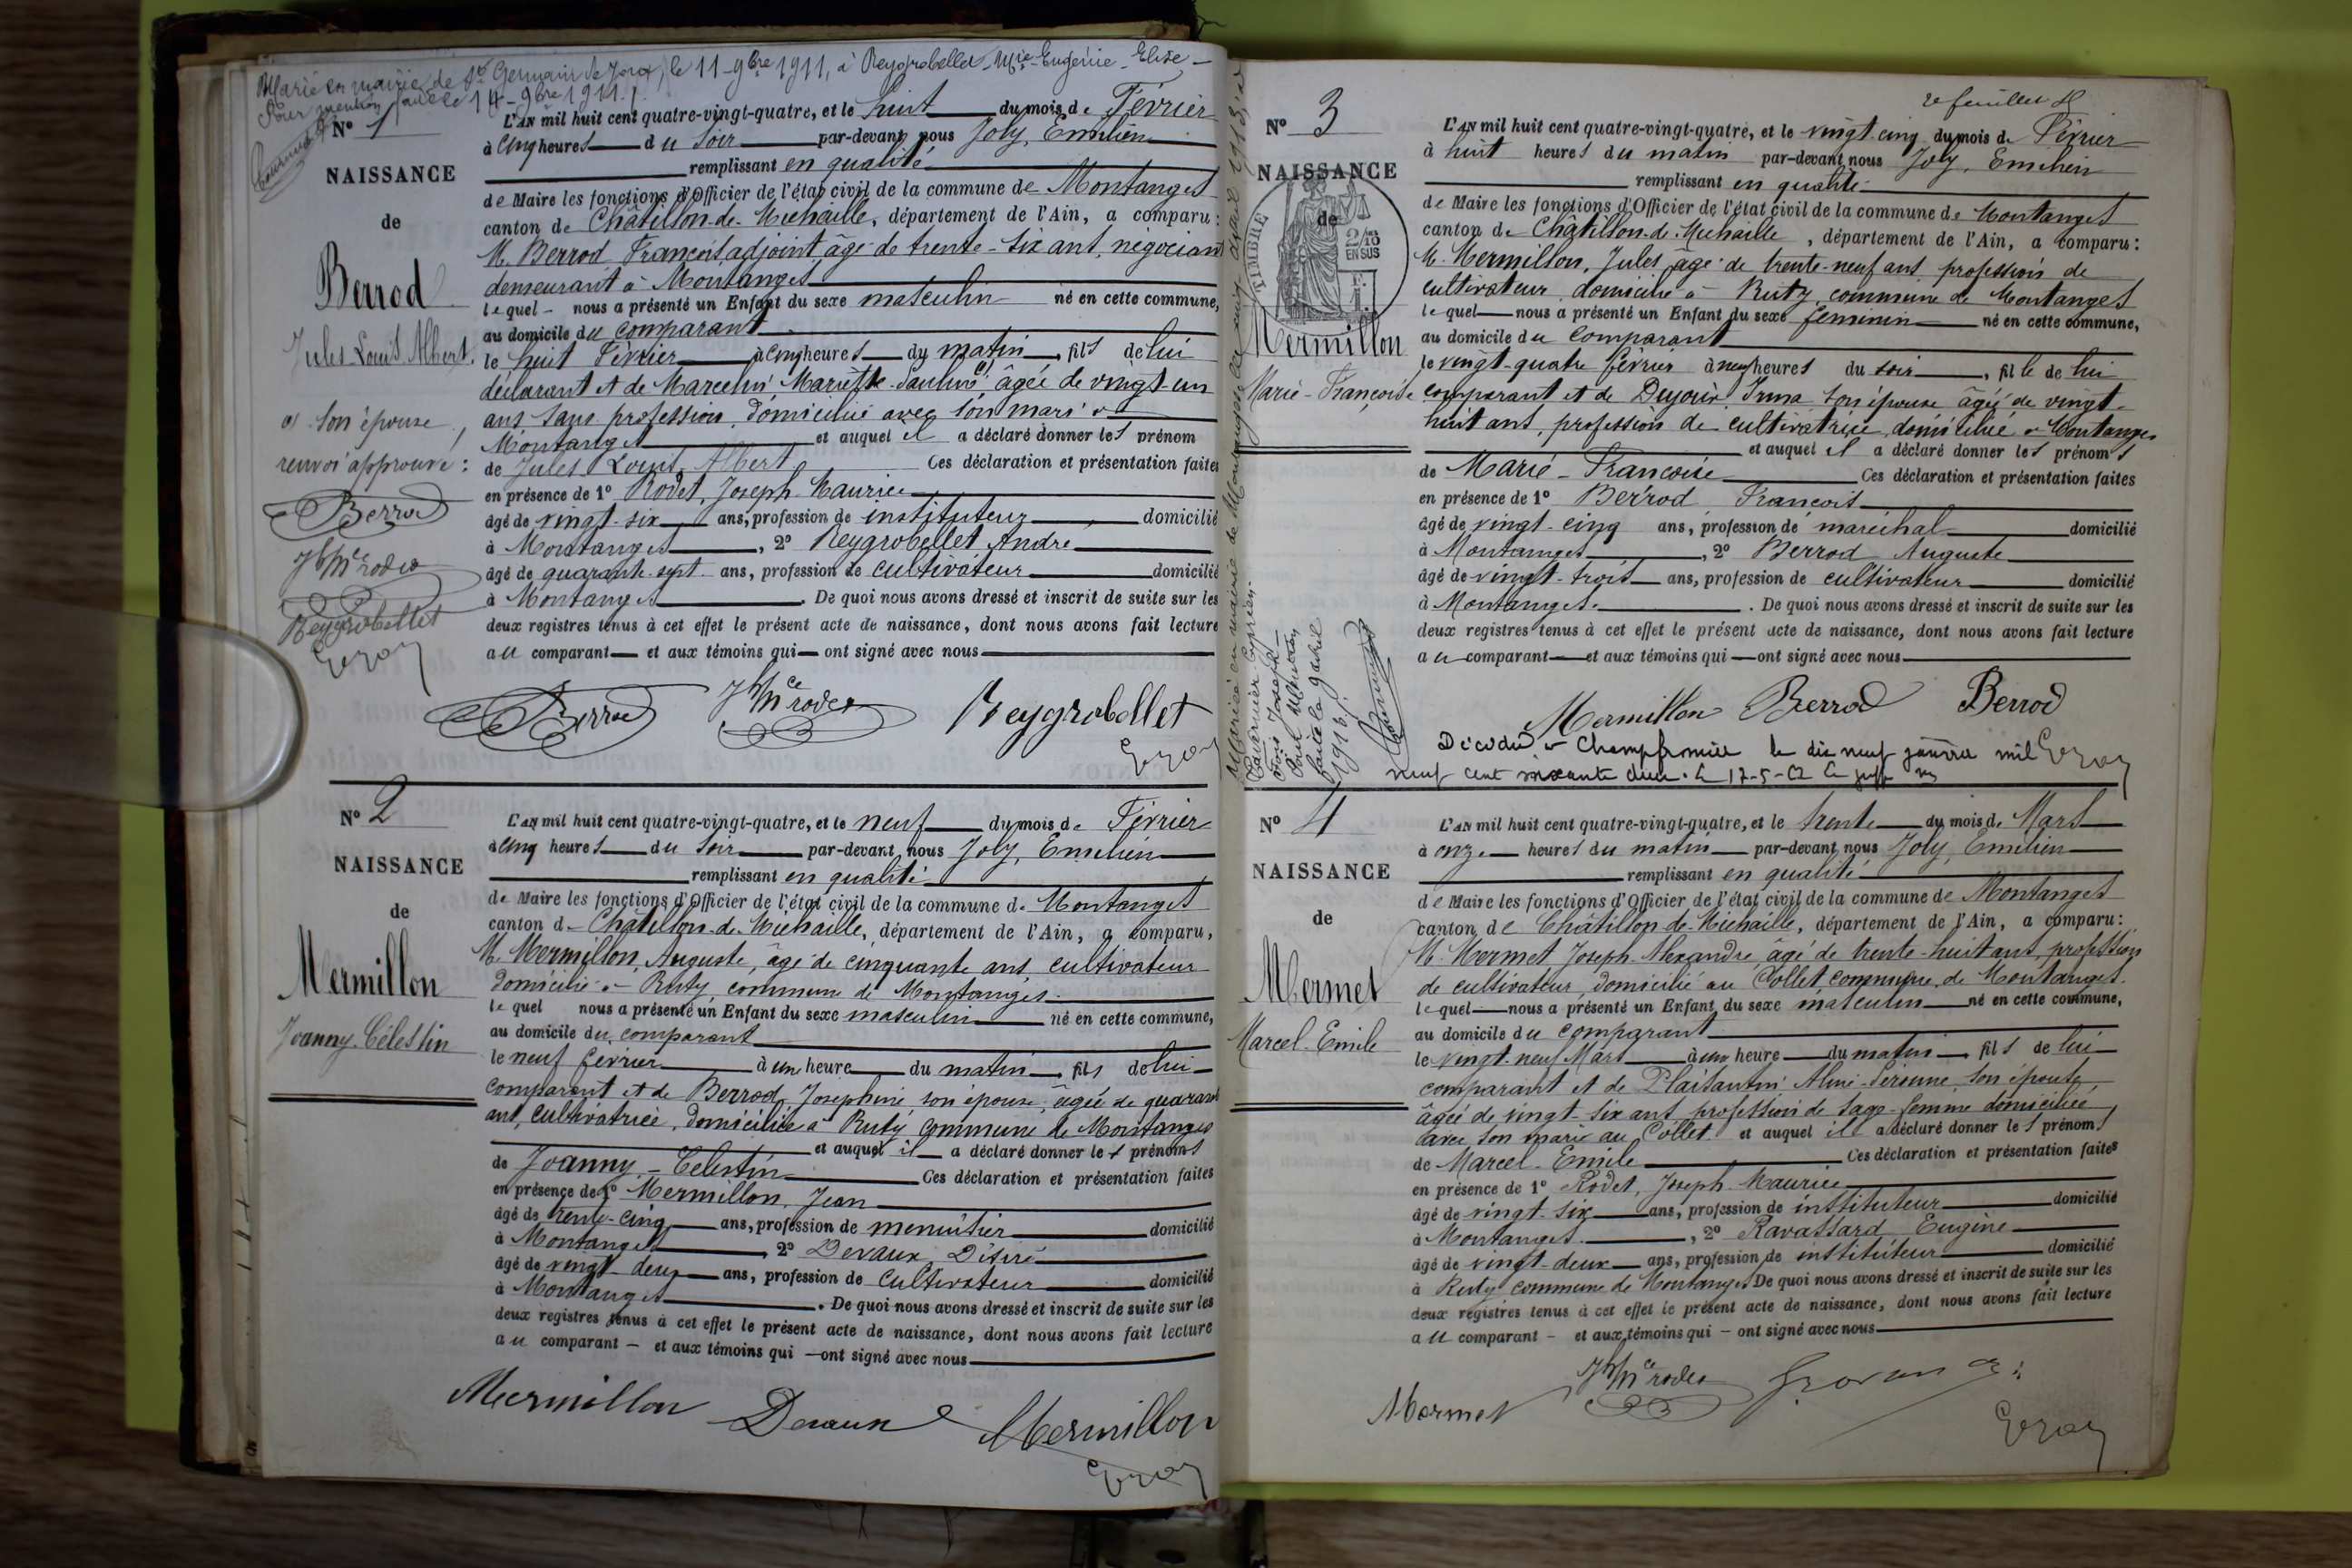 Marié en mairie de St Germain de Joux, le 11-9bre 1911, à Reygrobellet Mie-Eugénie-Elise-
Pour mention faite le 14-9bre 1911.
N° 1
NAISSANCE
de
Berrod
Jules-Louis-Albert.
a) son épouse,
renvoi approuvé :
Berrod
Jh Mce rodet
Reygrobellet
L'AN mil huit cent quatre-vingt-quatre, et le huit du mois de Février
à cinq heures du soir par-devant nous Joly, Emilien
remplissant en qualité
de Maire les fonctions d'Officier de l'état civil de la commune de Montanges
canton de Châtillon-de-Michaille, département de l'Ain, a comparu :
M. Berrod François adjoint, âgé de trente-six ans, négociant
demeurant à Montanges
lequel nous a présenté un Enfant du sexe masculin né en cette commune,
au domicile du comparant
le huit Février à cinq heures du matin, fils de lui
déclarant et de Marcelin Mariette-Pauline a) âgée de vingt-un
ans sans profession, domiciliée avec son mari à
Montanges et auquel il a déclaré donner les prénom
de Jules Louis Albert Ces déclaration et présentation faites
en présence de 1° Rodet, Joseph-Maurice
âgé de vingt-six ans, profession de instituteur domicilié
à Montanges, 2° Reygrobellet André
âgé de quarante-sept ans, profession de cultivateur domicilié
à Montanges. De quoi nous avons dressé et inscrit de suite sur les
deux registres tenus à cet effet le présent acte de naissance, dont nous avons fait lecture
au comparant et aux témoins qui ont signé avec nous
Berrod Jh Mce rodet Reygrobellet
N° 2
NAISSANCE
de
Mermillon
Joanny-Célestin
L'AN mil huit cent quatre-vingt-quatre, et le neuf du mois de Février
à cinq heures du soir par-devant nous Joly, Emilien
remplissant en qualité
de Maire les fonctions d'Officier de l'état civil de la commune de Montanges
canton de Châtillon-de-Michaille, département de l'Ain, a comparu,
M. Mermillon, Auguste, âgé de cinquante ans, cultivateur
domicilié à Ruty, commune de Montanges
lequel nous a présenté un Enfant du sexe masculin né en cette commune,
au domicile du comparant
le neuf février à un heure du matin, fils de lui
comparant et de Berrod, Josephine son épouse, âgée de quarante
ans, cultivatrice, domiciliée à Ruty commune de Montanges
et auquel il a déclaré donner les prénoms
de Joanny-Celestin Ces déclaration et présentation faites
en présence de 1° Mermillon, Jean
âgé de trente-cinq ans, profession de menuisier domicilié
à Montanges, 2° Devaux Désiré
âgé de vingt-deux ans, profession de cultivateur domicilié
à Montanges. De quoi nous avons dressé et inscrit de suite sur les
deux registres tenus à cet effet le présent acte de naissance, dont nous avons fait lecture
au comparant et aux témoins qui ont signé avec nous
Mermillon Devaux Mermillon
2e feuillet
N° 3
NAISSANCE
de
TIMBRE
2/10 EN SUS
Mermillon
Marie-Françoise
Pour Mention
L'AN mil huit cent quatre-vingt-quatre, et le vingt-cinq du mois de Février
à huit heures du matin par-devant nous Joly, Emilien
remplissant en qualité
de Maire les fonctions d'Officier de l'état civil de la commune de Montanges
canton de Châtillon-de-Michaille, département de l'Ain, a comparu :
M. Mermillon, Jules, âgé de trente-neuf ans profession de
cultivateur domicilié à Ruty, commune de Montanges
lequel nous a présenté un Enfant du sexe féminin né en cette commune,
au domicile du comparant
le vingt-quatre février à neuf heures du soir, fille de lui
comparant et de son épouse âgée de vingt-
huit ans, profession de cultivatrice, domiciliée à Montanges
et auquel il a déclaré donner les prénoms
de Marie-Françoise Ces déclaration et présentation faites
en présence de 1° Berrod François
âgé de vingt-cinq ans, profession de maréchal domicilié
à Montanges, 2° Berrod Auguste
âgé de vingt-trois ans, profession de cultivateur domicilié
à Montanges. De quoi nous avons dressé et inscrit de suite sur les
deux registres tenus à cet effet le présent acte de naissance, dont nous avons fait lecture
au comparant et aux témoins qui ont signé avec nous
Mermillon Berrod Berrod
Décédée à Champfromier le dix neuf janvier mil
neuf cent soixante deux. Le 17-5-62
N° 4
NAISSANCE
de
Mermet
Marcel-Emile
L'AN mil huit cent quatre-vingt-quatre, et le trente du mois de Mars
à onze heures du matin par-devant nous Joly, Emilien
remplissant en qualité
de Maire les fonctions d'Officier de l'état civil de la commune de Montanges
canton de Châtillon-de-Michaille, département de l'Ain, a comparu :
M. Mermet Joseph-Alexandre, âgé de trente-huit ans, profession
de cultivateur, domicilié au Collet commune de Montanges.
lequel nous a présenté un Enfant du sexe masculin né en cette commune,
au domicile du comparant
le vingt-neuf Mars à une heure du matin, fils de lui
comparant et de Plaisantin son épouse,
âgée de vingt-six ans, profession de sage-femme domiciliée
avec son mari au Collet et auquel il a déclaré donner les prénoms
de Marcel-Emile Ces déclaration et présentation faites
en présence de 1° Rodet, Joseph-Maurice
âgé de vingt-six ans, profession de instituteur domicilié
à Montanges, 2° Ravassard Eugène
âgé de vingt-deux ans, profession de instituteur domicilié
à Ruty commune de Montanges De quoi nous avons dressé et inscrit de suite sur les
deux registres tenus à cet effet le présent acte de naissance, dont nous avons fait lecture
au comparant et aux témoins qui ont signé avec nous
Mermet Jh Mce rodet